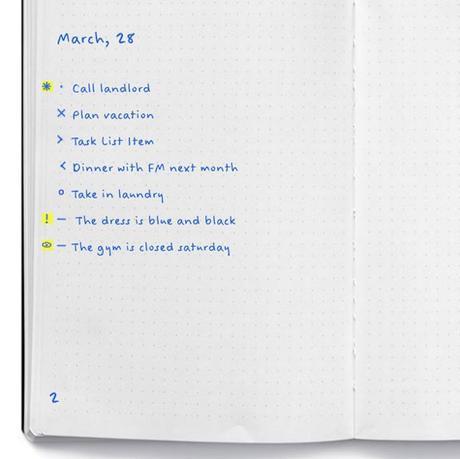 March, 28
* · Call landlord
× Plan vacation
> Task List Item
< Dinner with FM next month
o Take in laundry
! — The dress is blue and black
👁 — The gym is closed saturday
2